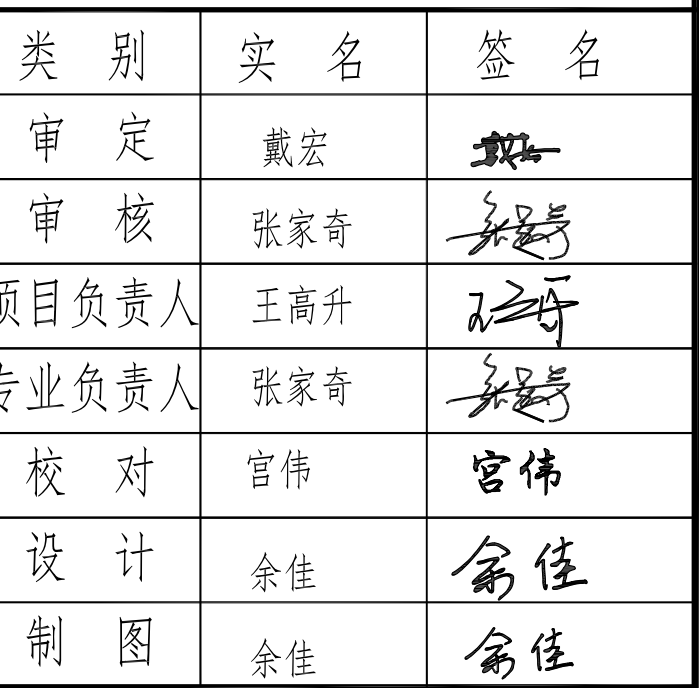 类别 实名 签名
审定 戴宏
审核 张家奇 张家奇
项目负责人 王高升
专业负责人 张家奇 张家奇
校对 宫伟 宫伟
设计 余佳 余佳
制图 余佳 余佳